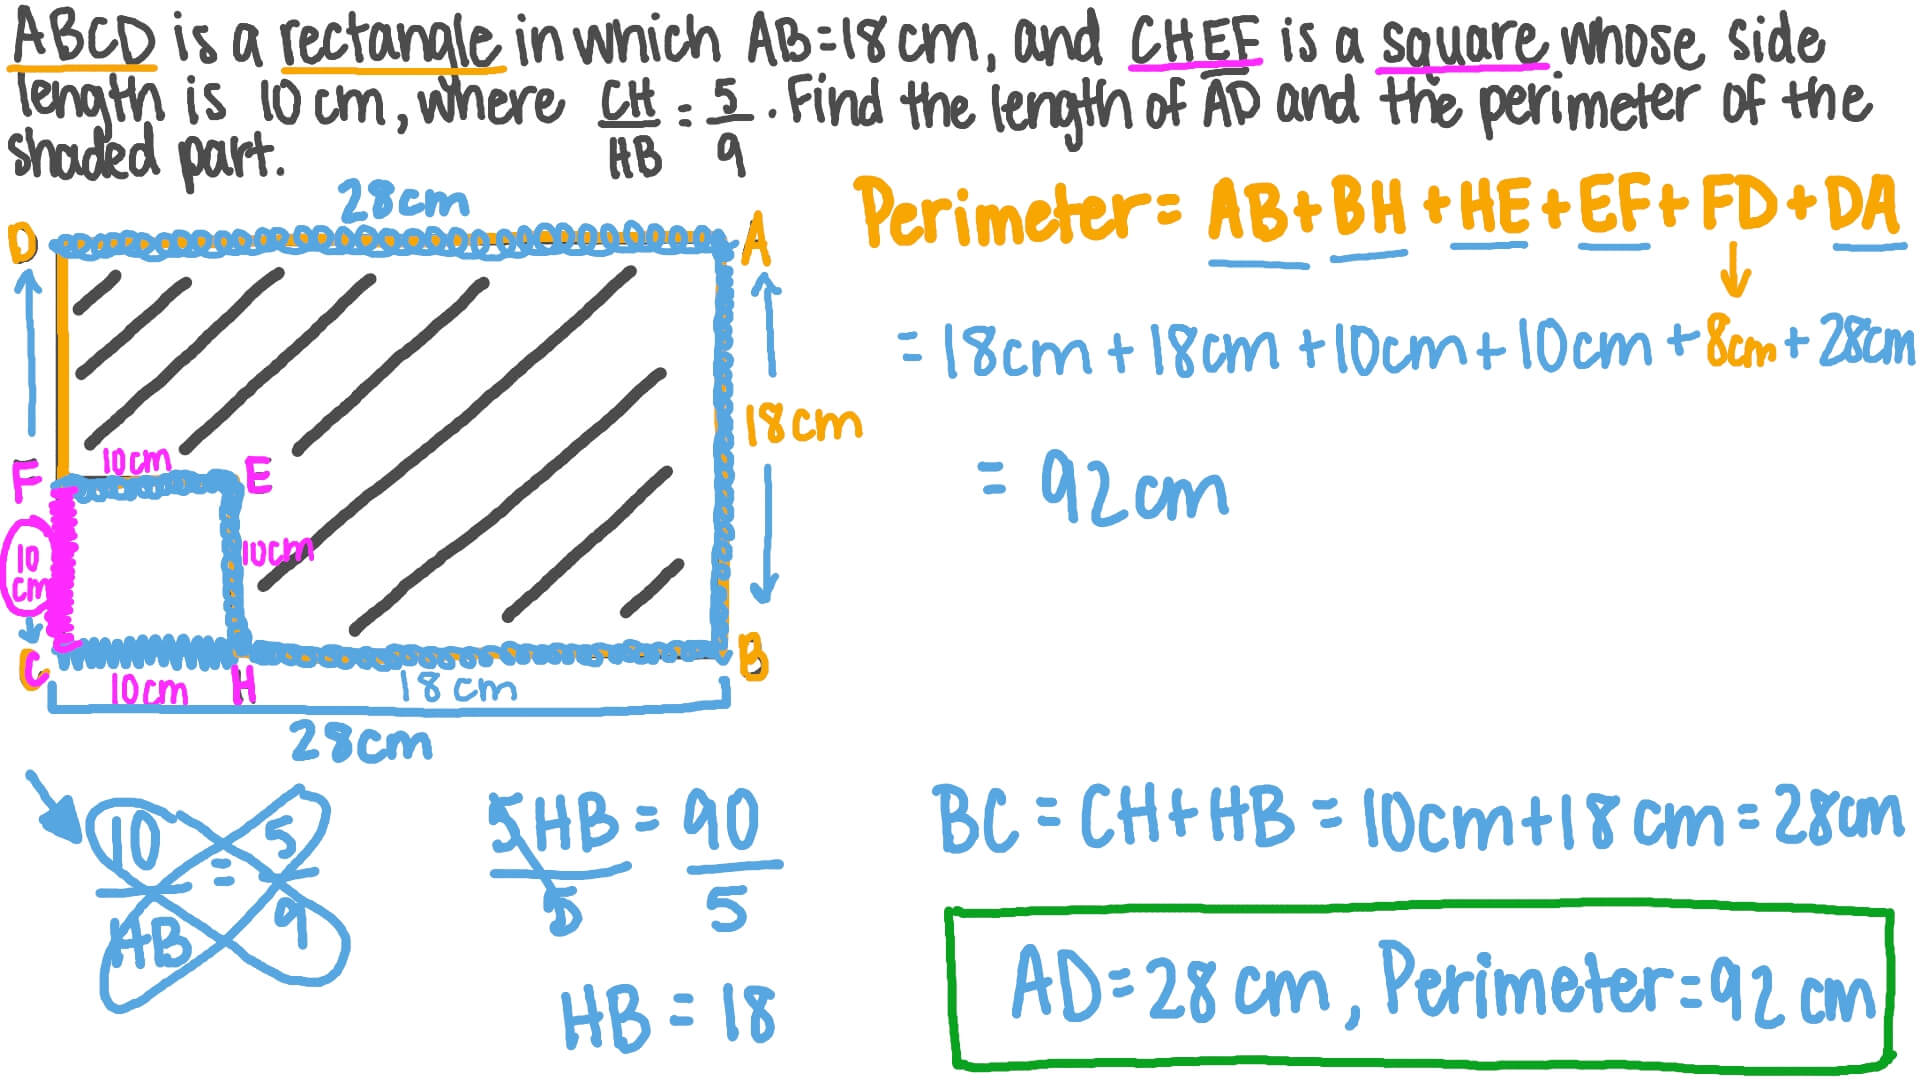 ABCD is a rectangle in which AB=18cm, and CHEF is a square whose side
length is 10 cm, where CH/HB = 5/9. Find the length of AD and the perimeter of the
shaded part.
28cm
D
A
Perimeter = AB + BH + HE + EF + FD + DA
= 18cm + 18cm + 10cm + 10cm + 8cm + 28cm
18cm
10cm
F
E
= 92cm
10cm
10
cm
C
B
10cm
H
18cm
28cm
10/HB = 5/9
5HB/5 = 90/5
HB = 18
BC = CH + HB = 10cm + 18cm = 28cm
AD = 28 cm, Perimeter = 92 cm